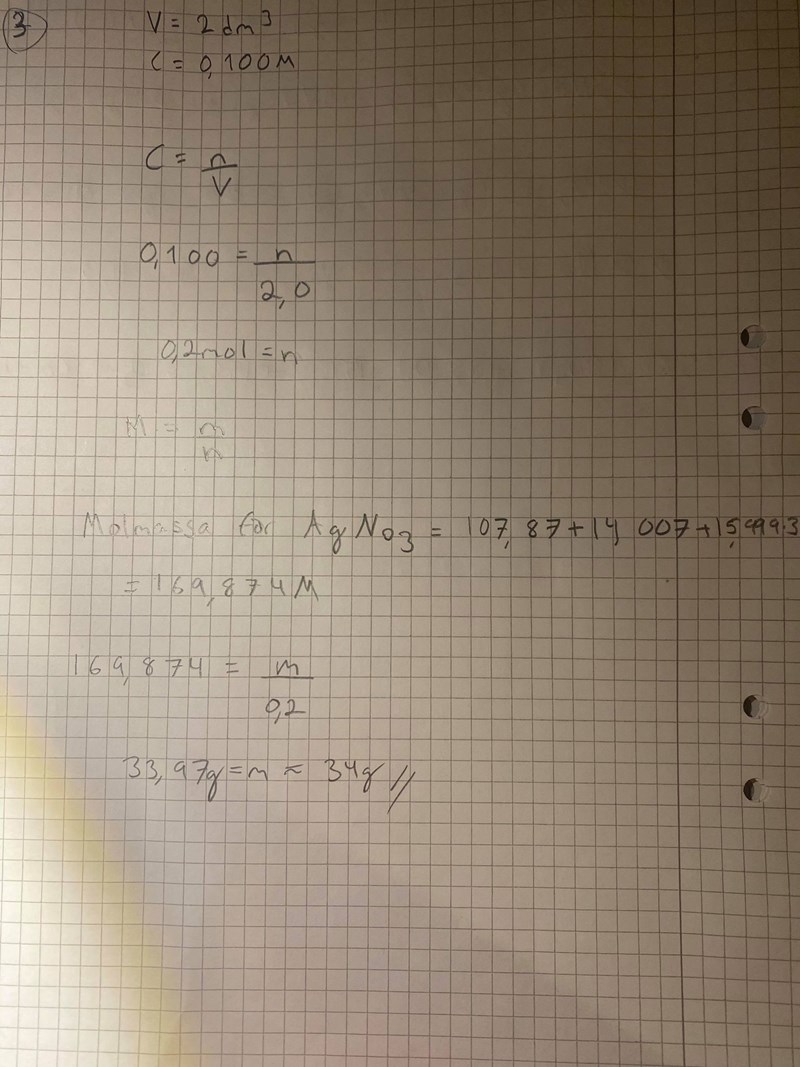 3
V = 2 dm³
C = 0,100M
C = n/V
0,100 = n/2,0
0,2mol = n
M = m/n
Molmassa för AgNO₃ = 107,87+14,007+15,999·3
= 169,874M
169,874 = m/0,2
33,97g = m ≈ 34g //